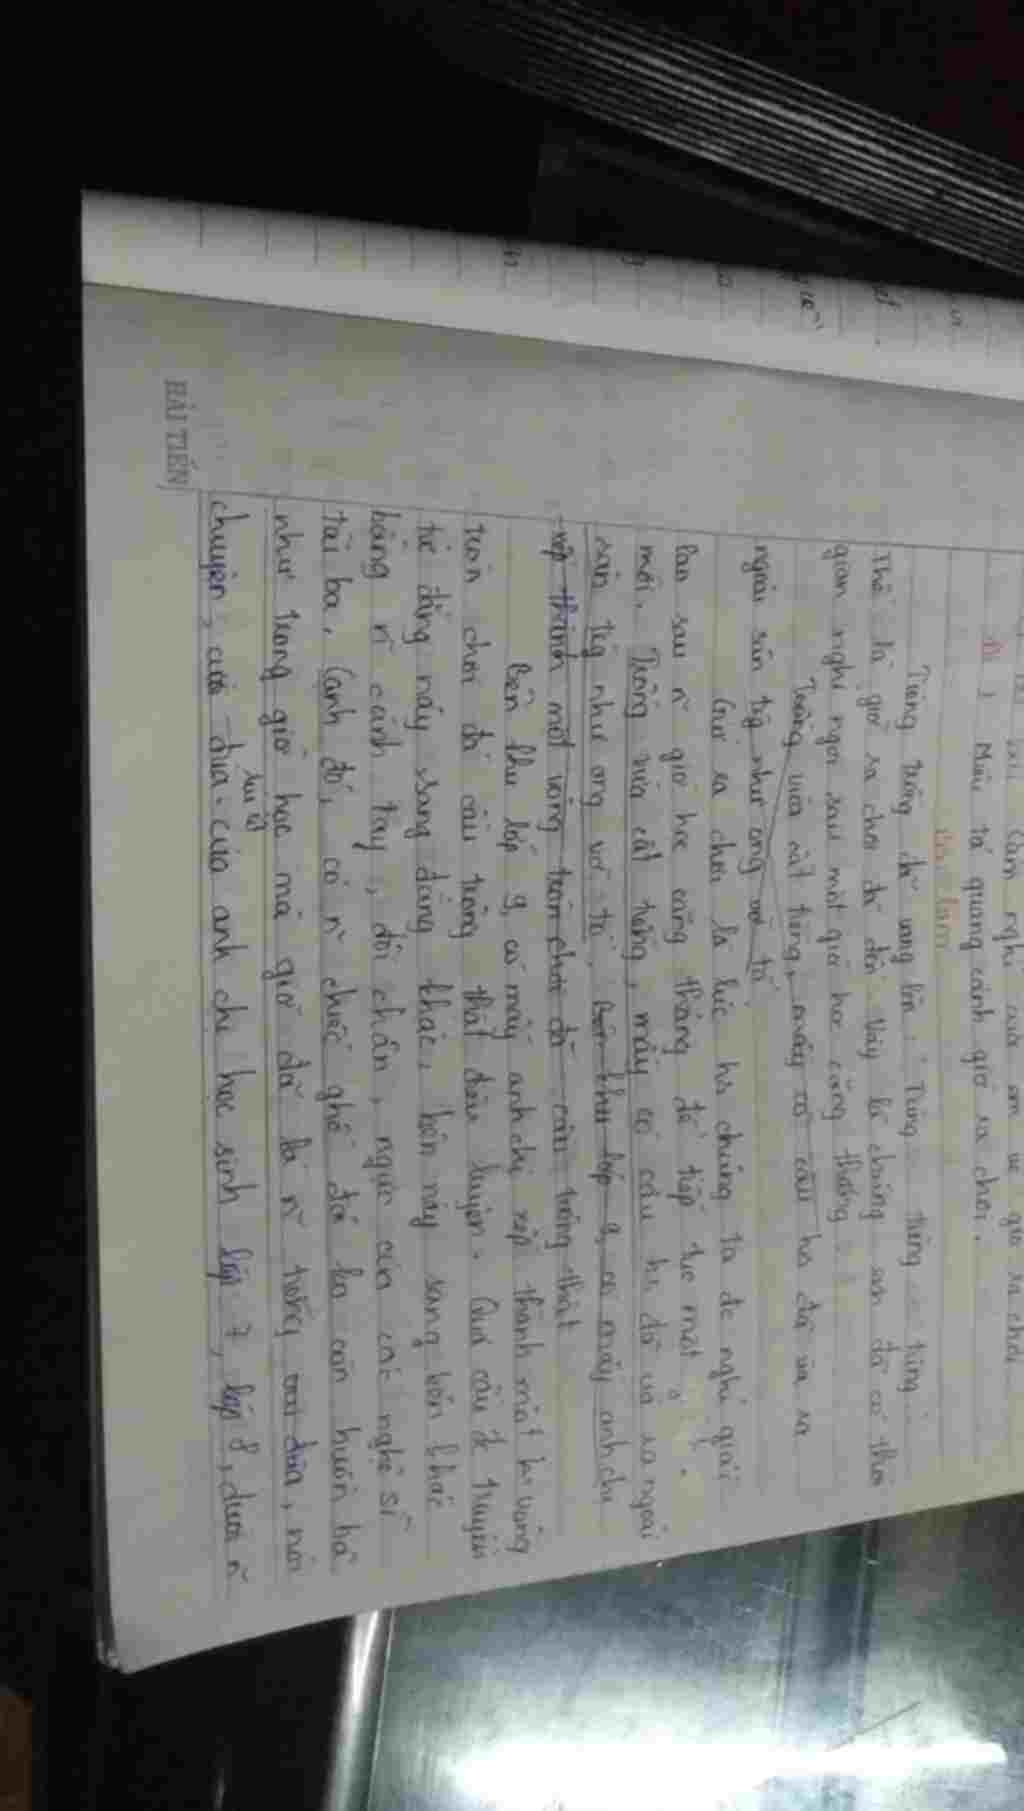 cảm nghĩ của em về giờ ra chơi
Đề 1 Miêu tả quang cảnh giờ ra chơi.
Bài làm
Tiếng trống đã vang lên, Tùng.. tùng.. tùng..
Thế là giờ ra chơi đã đến. Vậy là chúng em đã có thời
gian nghỉ ngơi sau một giờ học căng thẳng.
Trống vừa cất tiếng, mấy cô cậu hs đã ùa ra
ngoài sân trg như ong vỡ tổ
Giờ ra chơi là lúc hs chúng ta đc nghỉ giải
lao sau ~ giờ học căng thẳng để tiếp tục một
mới. Trống vừa cất tiếng, mấy cô cậu hs đã ùa ra ngoài
sân trg như ong vỡ tổ, Bên khu lớp 9, có mấy anh chị
xếp thành một vòng tròn chơi đá cầu trông thật
Bên khu lớp 9, có mấy anh chị xếp thành một h. vòng
tròn chơi đá cầu trông thật điêu luyện. Quả cầu đc truyền
từ đằng này sang đằng khác, bên này sang bên khác
bằng ~ cánh tay, đôi chân, ngực của các nghệ sĩ
tài ba. Cạnh đó, có ~ chiếc ghế đá ko còn buồn bã
như trong giờ học mà giờ đã là ~ tiếng cười đùa, nói
chuyện, cười đùa của anh chị học sinh lớp 7, lớp 8, dưới ~
HẢI TIẾN